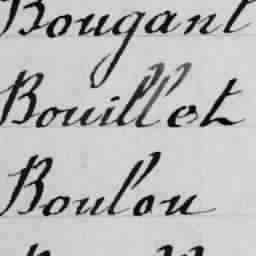 Bougant
Bouillot
Boulou